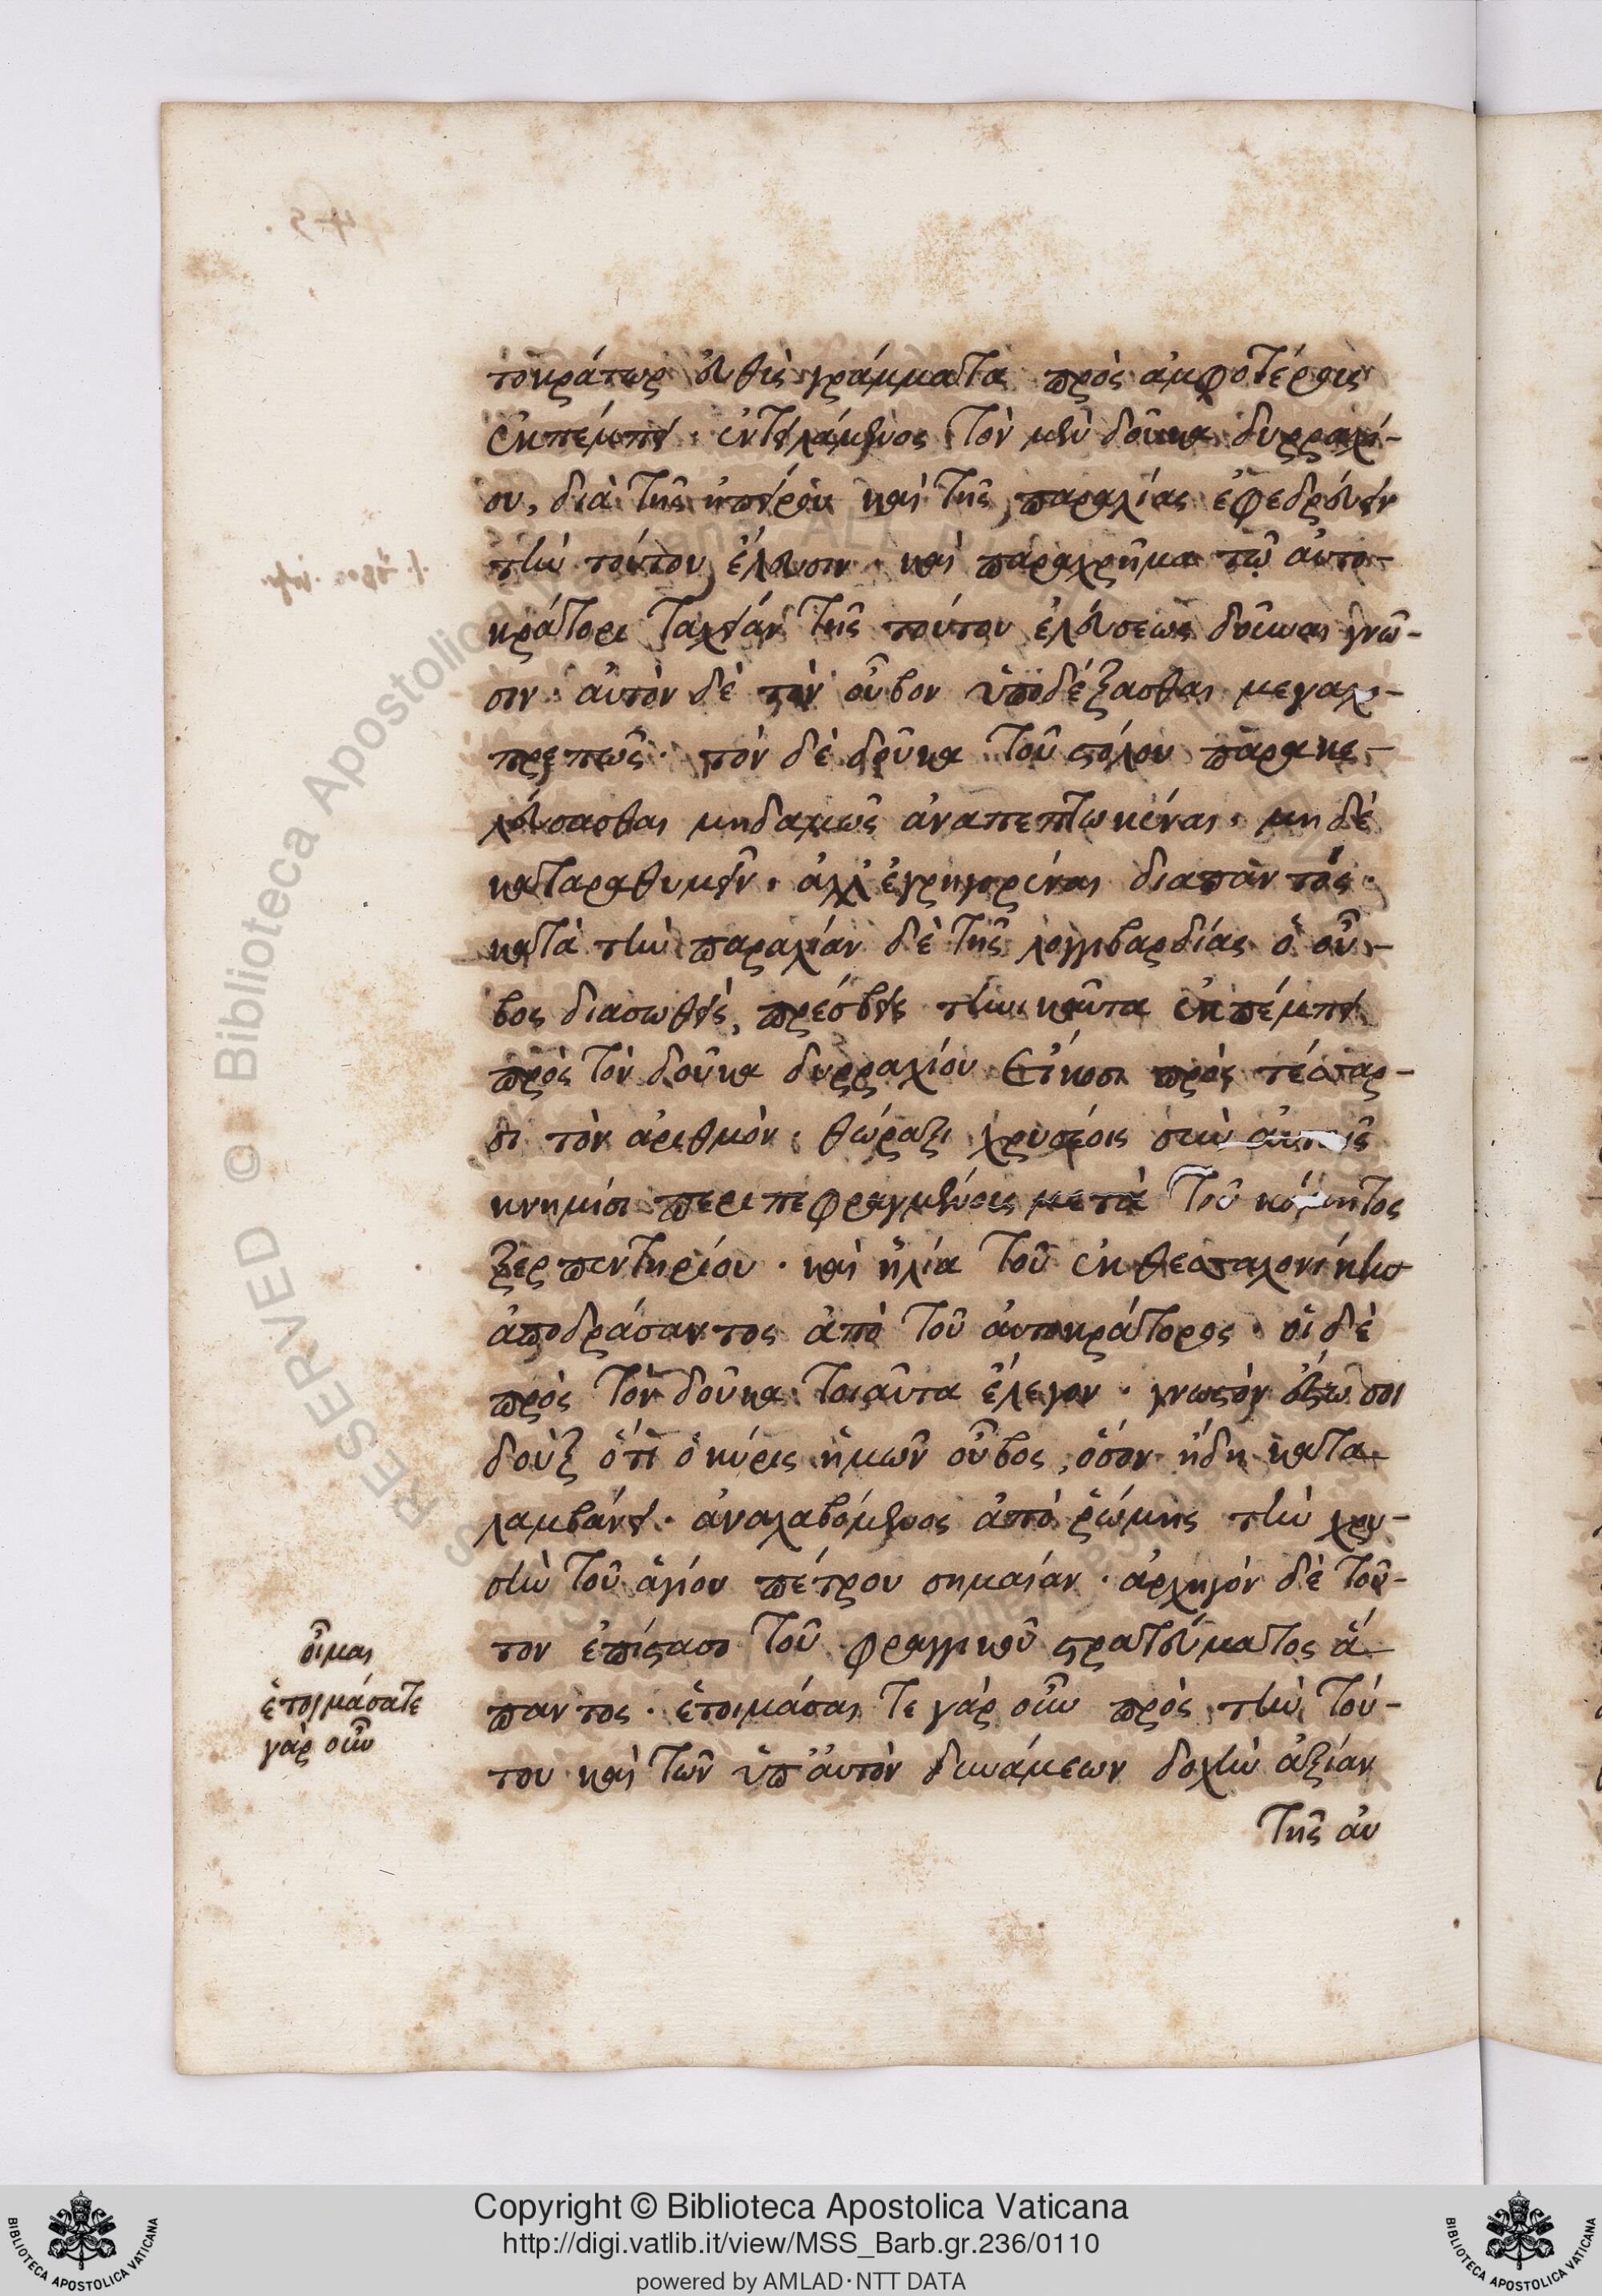 τοκράτωρ εὐθὺς γράμματα πρὸς ἀμφοτέρους
ἐκπέμπει· ἐντειλάμενος τὸν μὲν δοῦκα δυρραχί-
ου, διὰ τῆς ἠπείρου καὶ τῆς παραλίας ἐφεδρεύειν
τὴν τούτου ἔλευσιν· καὶ παραχρῆμα τῷ αὐτο-
κράτορι ταχεῖαν τῆς τούτου ἐλεύσεως δοῦναι γνῶ-
σιν· αὐτὸν δὲ τὸν οὖβον ὑποδέξασθαι μεγαλο-
πρεπῶς· τὸν δὲ δοῦκα τοῦ στόλου παρακε-
λεύσασθαι μηδαμῶς ἀναπεπτωκέναι, μηδὲ
καταραθυμεῖν· ἀλλ' ἐγρηγορέναι διαπαντός·
κατὰ τὴν παραλίαν δὲ τῆς λογγιβαρδίας ὁ οὖ-
βος διασωθεὶς, πρέσβεις τηνικαῦτα ἐκπέμπει
πρὸς τὸν δοῦκα δυρραχίου εἴκοσι πρὸς τέσσαρ-
σι τὸν ἀριθμὸν· θώραξι χρυσέοις σὺν αὐταῖς
κνημῖσι περιπεφραγμένοις μετὰ τοῦ κόμητος
ξερπεντηρίου· καὶ ἠλία τοῦ ἐκ θεσσαλονίκης
ἀποδράσαντος ἀπὸ τοῦ αὐτοκράτορος· οἱ δὲ
πρὸς τὸν δοῦκα τοιαῦτα ἔλεγον· γνωστὸν ἔστω σοι
δοὺξ ὅτι ὁ κύρις ἡμῶν οὖβος, ὅσον ἤδη κατα-
λαμβάνει· ἀναλαβόμενος ἀπὸ ῥώμης τὴν χρυ-
σῆν τοῦ ἁγίου πέτρου σημαίαν· ἀρχηγὸν δὲ τοῦ-
τον ἐπίστασο τοῦ φραγγικοῦ στρατεύματος ἅ-
παντος· ἑτοιμάσαι τε γὰρ οὖν πρὸς τὴν τού-
του καὶ τῶν ὑπ' αὐτὸν δυνάμεων δοχὴν ἀξίαν
τῆς αὐ
οἶμαι
ἑτοιμάσατε
γὰρ οὖν
Copyright © Biblioteca Apostolica Vaticana
http://digi.vatlib.it/view/MSS_Barb.gr.236/0110
powered by AMLAD·NTT DATA
BIBLIOTECA APOSTOLICA VATICANA
BIBLIOTECA APOSTOLICA VATICANA